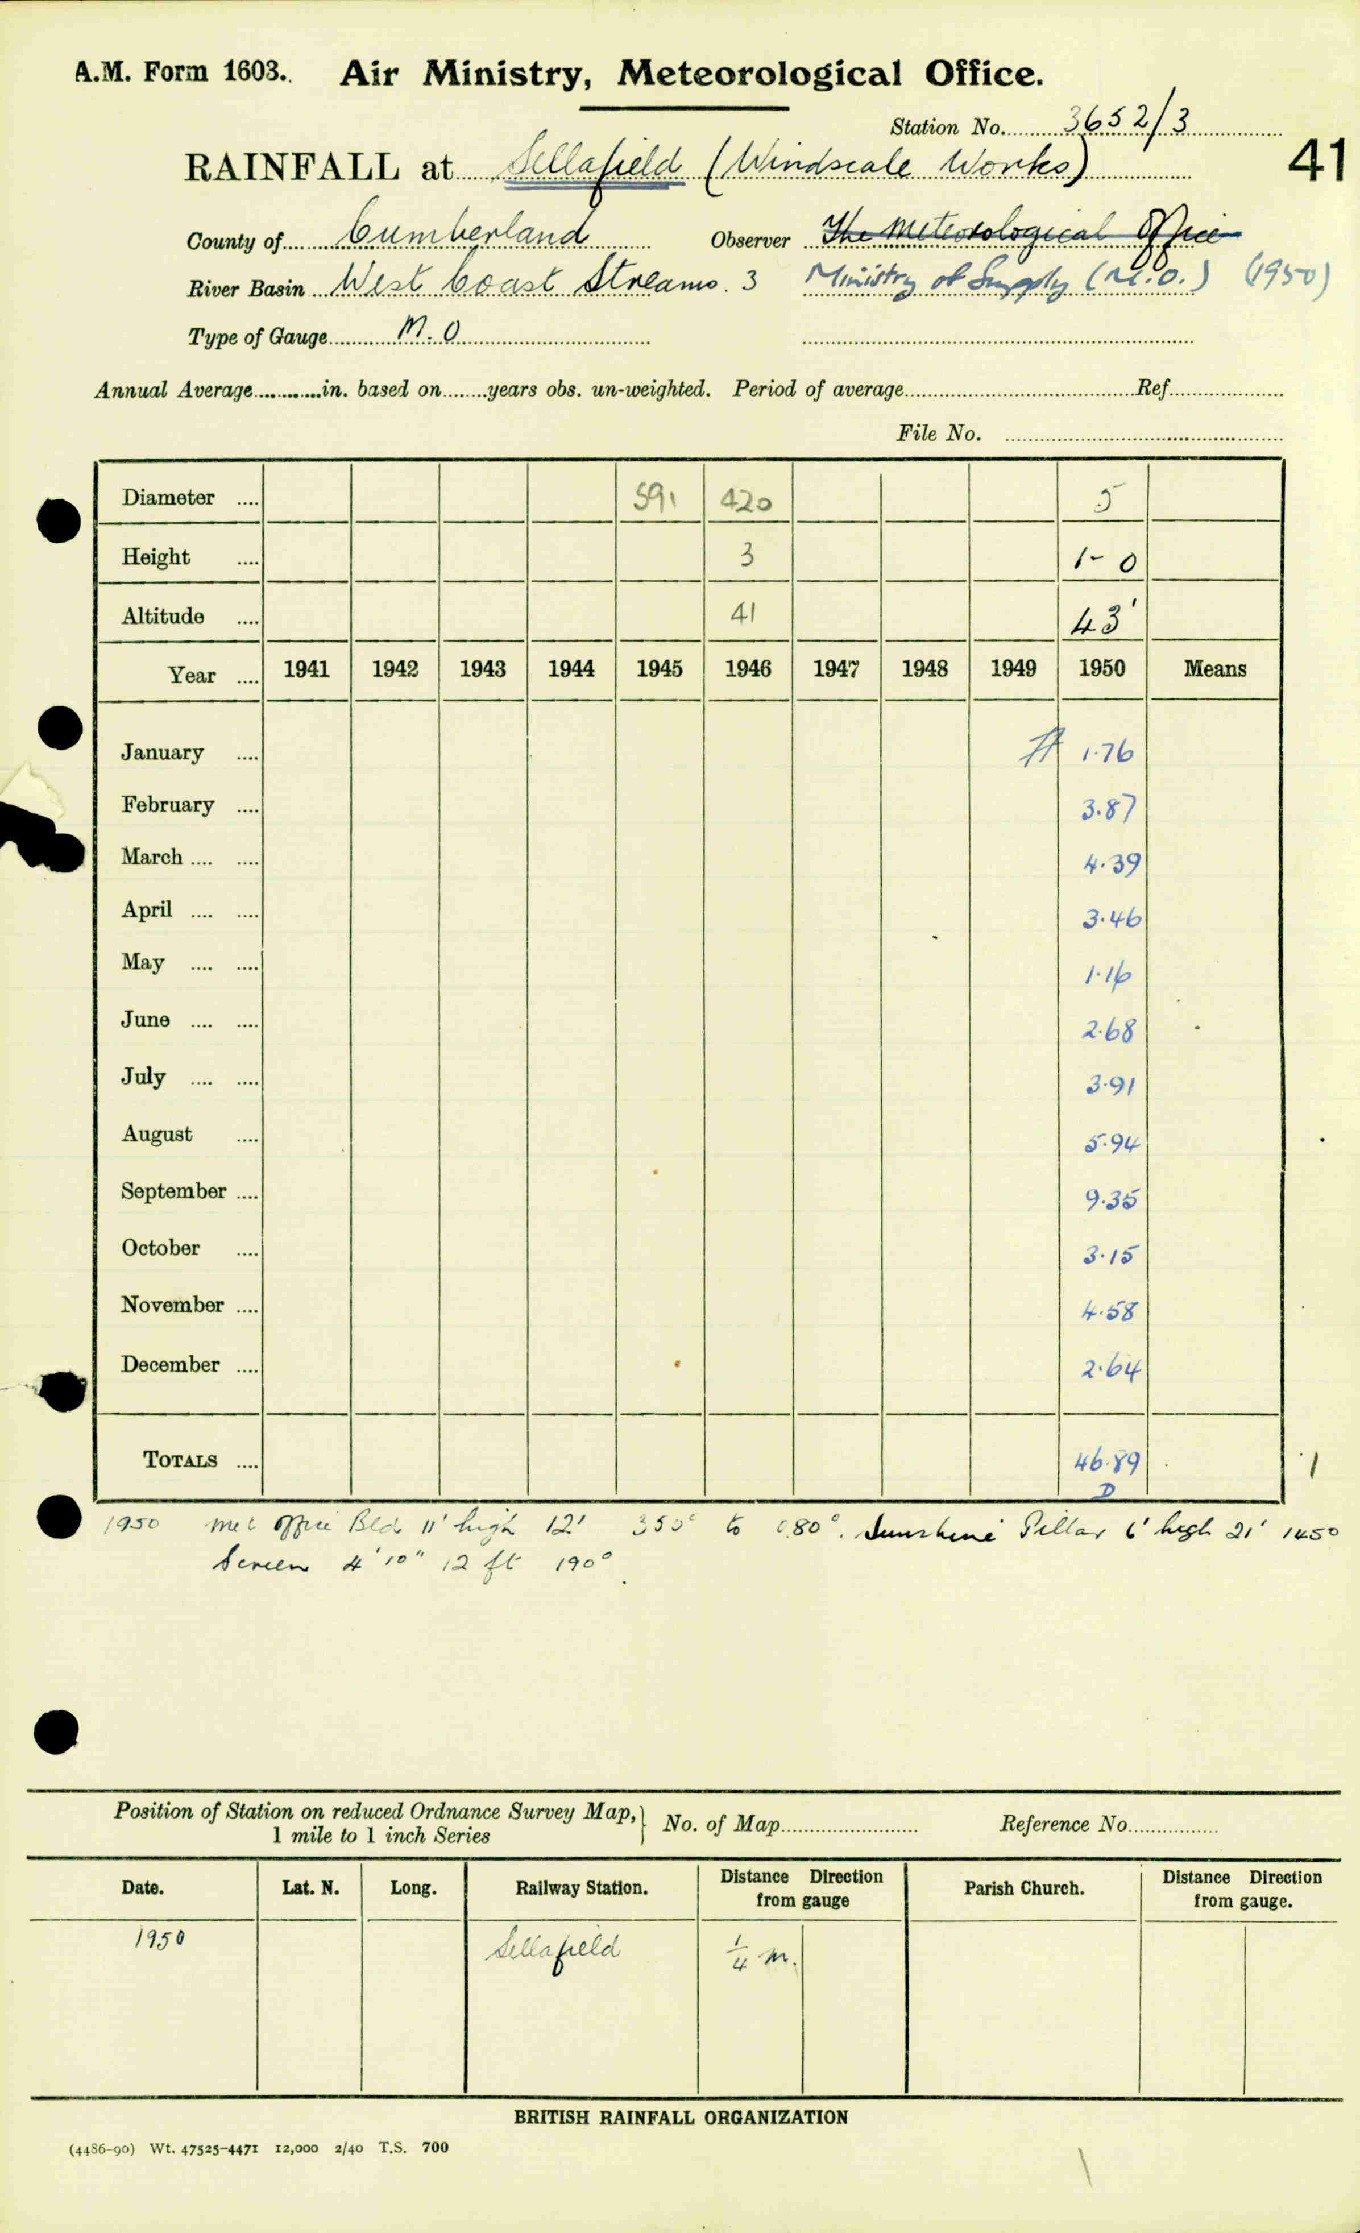 A.M. Form 1603. Air Ministry, Meteorological Office.
Station No. 3652/3
RAINFALL at Sellafield (Windscale Works) 41
County of Cumberland Observer The Meteorological Office
River Basin West Coast Streams. 3 Ministry of Supply (M.O.) (1950)
Type of Gauge M.O
Annual Average in. based on years obs. un-weighted. Period of average Ref
File No.
Diameter 591 420 5
Height 3 1-0
Altitude 41 43'
Year 1941 1942 1943 1944 1945 1946 1947 1948 1949 1950 Means
January 1.76
February 3.87
March 4.39
April 3.46
May 1.16
June 2.68
July 3.91
August 5.94
September 9.35
October 3.15
November 4.58
December 2.64
TOTALS 46.89
D
1950 Met Office Bld 11' high 12' 350° to 080°. Sunshine Pillar 6' high 21' 145°
Screen 4'10" 12 ft 190°
Position of Station on reduced Ordnance Survey Map, No. of Map Reference No
1 mile to 1 inch Series
Date. Lat. N. Long. Railway Station. Distance Direction from gauge Parish Church. Distance Direction from gauge.
1950 Sellafield 1/4 m.
BRITISH RAINFALL ORGANIZATION
(4486-90) Wt. 47525-4471 12,000 2/40 T.S. 700